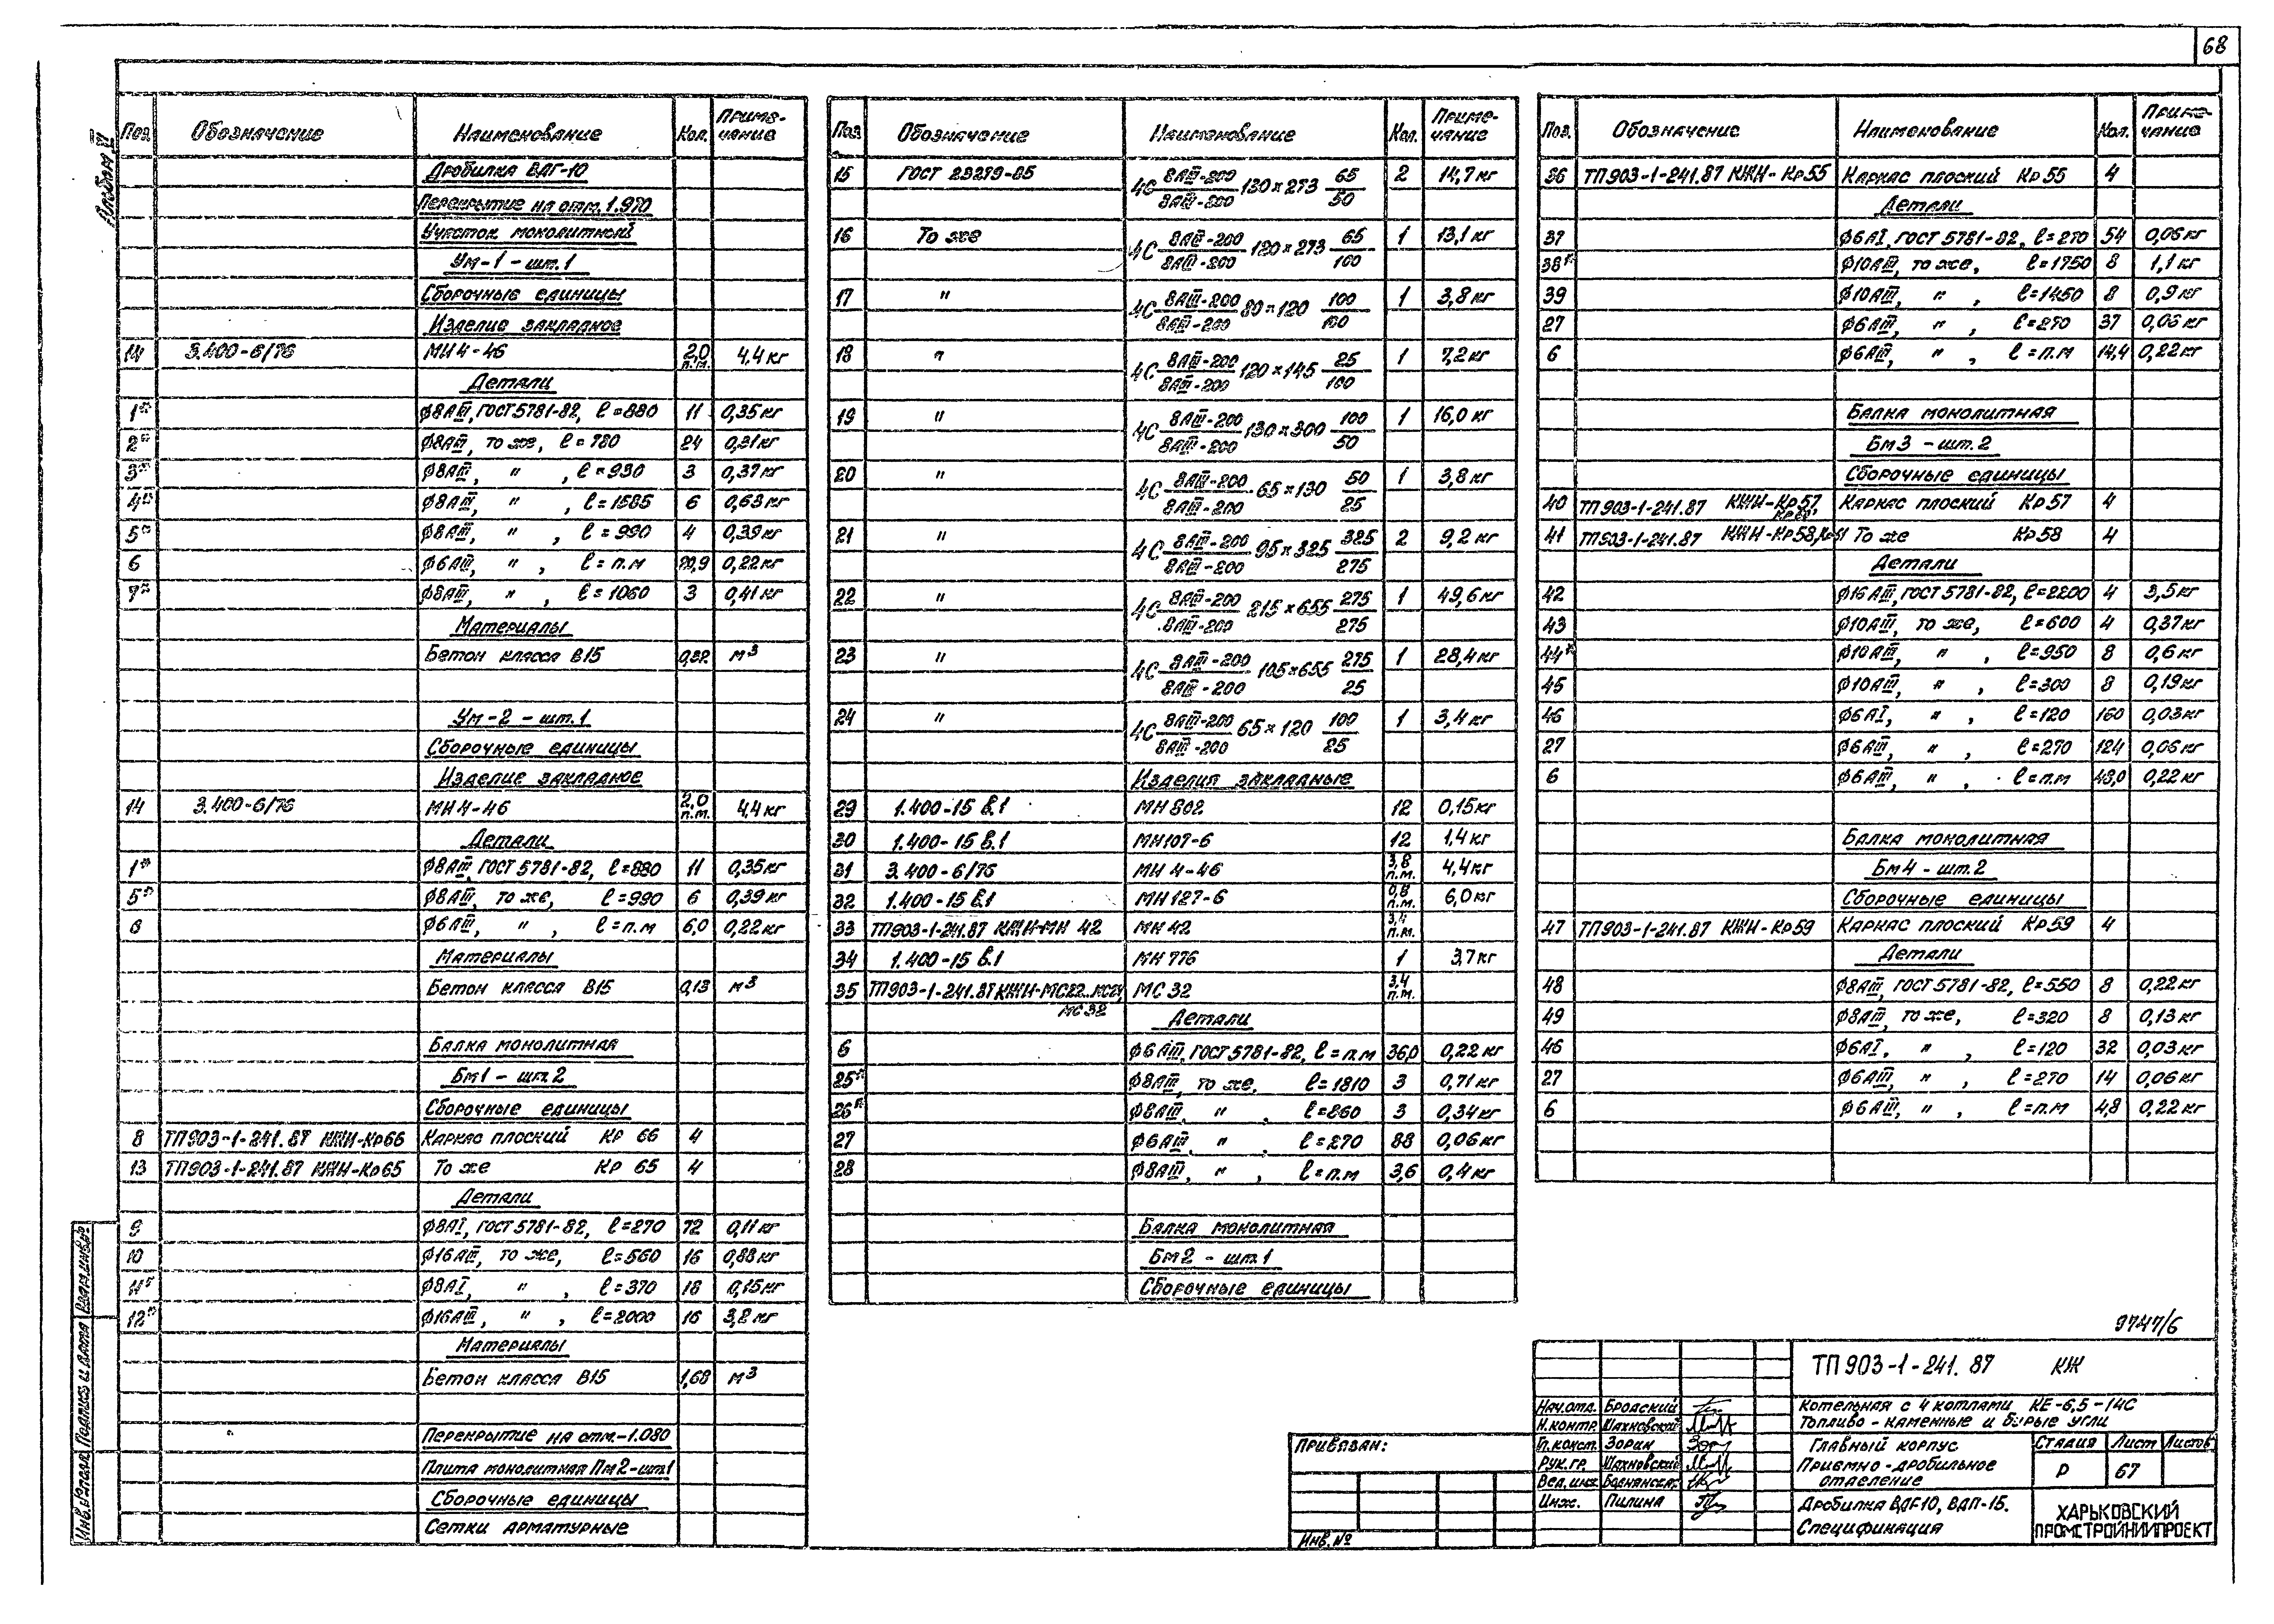 68
Альбом VI
Поз. Обозначение Наименование Кол. Примечание
Дробилка ВДГ-10
Перекрытие на отм. 1.970
Участок монолитный
Ум-1 - шт. 1
Сборочные единицы
Изделие закладное
14 3.400-6/76 МН4-46 2,0 п.м. 4,4 кг
Детали
1* Ф8АIII, ГОСТ 5781-82, ℓ=880 11 0,35 кг
2* Ф8АIII, то же, ℓ=780 24 0,31 кг
3* Ф8АIII, " , ℓ=930 3 0,37 кг
4* Ф8АIII, " , ℓ=1585 6 0,63 кг
5* Ф8АIII, " , ℓ=990 4 0,39 кг
6 Ф6АIII, " , ℓ=п.м 20,9 0,22 кг
7* Ф8АIII, " , ℓ=1060 3 0,41 кг
Материалы
Бетон класса В15 0,32 м³
Ум-2 - шт. 1
Сборочные единицы
Изделие закладное
14 3.400-6/76 МН4-46 2,0 п.м. 4,4 кг
Детали
1* Ф8АIII, ГОСТ 5781-82, ℓ=880 11 0,35 кг
5* Ф8АIII, то же, ℓ=990 6 0,39 кг
6 Ф6АIII, " , ℓ=п.м 6,0 0,22 кг
Материалы
Бетон класса В15 0,13 м³
Балка монолитная
Бм1 - шт. 2
Сборочные единицы
8 ТП903-1-241.87 КЖИ-Кр66 Каркас плоский Кр 66 4
13 ТП903-1-241.87 КЖИ-Кр65 То же Кр 65 4
Детали
9 Ф8АI, ГОСТ 5781-82, ℓ=270 72 0,11 кг
10 Ф16АIII, то же, ℓ=560 16 0,88 кг
11* Ф8АI, " , ℓ=370 18 0,15 кг
12* Ф16АIII, " , ℓ=2000 16 3,2 кг
Материалы
Бетон класса В15 1,68 м³
Перекрытие на отм.-1.080
Плита монолитная Пм2-шт.1
Сборочные единицы
Сетки арматурные
Поз. Обозначение Наименование Кол. Примечание
15 ГОСТ 23279-85 4С 8АIII-200/8АIII-200 130×273 65/50 2 14,7 кг
16 То же 4С 8АIII-200/8АIII-200 120×273 65/100 1 13,1 кг
17 " 4С 8АIII-200/8АIII-200 80×120 100/100 1 3,8 кг
18 " 4С 8АIII-200/8АIII-200 120×145 25/100 1 7,2 кг
19 " 4С 8АIII-200/8АIII-200 130×300 100/50 1 16,0 кг
20 " 4С 8АIII-200/8АIII-200 65×130 50/25 1 3,8 кг
21 " 4С 8АIII-200/8АIII-200 95×325 325/275 2 9,2 кг
22 " 4С 8АIII-200/8АIII-200 215×655 275/275 1 49,6 кг
23 " 4С 8АIII-200/8АIII-200 105×655 275/25 1 28,4 кг
24 " 4С 8АIII-200/8АIII-200 65×120 100/25 1 3,4 кг
Изделия закладные
29 1.400-15 в.1 МН 802 12 0,15 кг
30 1.400-15 в.1 МН107-6 12 1,4 кг
31 3.400-6/76 МН 4-46 3,8 п.м. 4,4 кг
32 1.400-15 в.1 МН 127-6 0,8 п.м. 6,0 кг
33 ТП903-1-241.87 КЖИ-МН 42 МН 42 3,4 п.м.
34 1.400-15 в.1 МН 776 1 3,7 кг
35 ТП903-1-241.87 КЖИ-МС22...МС24 МС 32 3,4 п.м.
МС 32 Детали
6 Ф6АIII, ГОСТ 5781-82, ℓ=п.м 36,0 0,22 кг
25* Ф8АIII, то же, ℓ=1810 3 0,71 кг
26* Ф8АIII, " , ℓ=860 3 0,34 кг
27 Ф6АIII, " , ℓ=270 88 0,06 кг
28 Ф8АIII, " , ℓ=п.м 3,6 0,4 кг
Балка монолитная
Бм2 - шт. 1
Сборочные единицы
Поз. Обозначение Наименование Кол. Примечание
36 ТП903-1-241.87 КЖИ-Кр55 Каркас плоский Кр 55 4
Детали
37 Ф6АI, ГОСТ 5781-82, ℓ=270 54 0,06 кг
38* Ф10АIII, то же, ℓ=1750 8 1,1 кг
39 Ф10АIII, " , ℓ=1450 8 0,9 кг
27 Ф6АIII, " , ℓ=270 37 0,06 кг
6 Ф6АIII, " , ℓ=п.м 14,4 0,22 кг
Балка монолитная
Бм3 - шт. 2
Сборочные единицы
40 ТП903-1-241.87 КЖИ-Кр57, Кр60 Каркас плоский Кр57 4
41 ТП903-1-241.87 КЖИ-Кр58, Кр61 То же Кр58 4
Детали
42 Ф16АIII, ГОСТ 5781-82, ℓ=2200 4 3,5 кг
43 Ф10АIII, то же, ℓ=600 4 0,37 кг
44* Ф10АIII, " , ℓ=950 8 0,6 кг
45 Ф10АIII, " , ℓ=300 8 0,19 кг
46 Ф6АI, " , ℓ=120 160 0,03 кг
27 Ф6АIII, " , ℓ=270 124 0,06 кг
6 Ф6АIII, " , ℓ=п.м 43,0 0,22 кг
Балка монолитная
Бм4 - шт. 2
Сборочные единицы
47 ТП903-1-241.87 КЖИ-Кр59 Каркас плоский Кр59 4
Детали
48 Ф8АIII, ГОСТ 5781-82, ℓ=550 8 0,22 кг
49 Ф8АIII, то же, ℓ=320 8 0,13 кг
46 Ф6АI, " , ℓ=120 32 0,03 кг
27 Ф6АIII, " , ℓ=270 14 0,06 кг
6 Ф6АIII, " , ℓ=п.м 4,8 0,22 кг
9747/6
ТП 903-1-241.87 КЖ
Котельная с 4 котлами КЕ-6,5-14С
Топливо - каменные и бурые угли
Нач.отд. Бродский
Н.контр. Шахновский
Гл.конст. Зорин
Рук.гр. Шахновский
Вед.инж.
Инж. Пилина
Главный корпус
Приемно-дробильное
отделение
Стадия Лист Листов
Р 67
Дробилка ВДГ-10, ВДП-15.
Спецификация
ХАРЬКОВСКИЙ
ПРОМСТРОЙНИИПРОЕКТ
Привязан:
Инв.№
Инв.№ подл. Подпись и дата Взам.инв.№